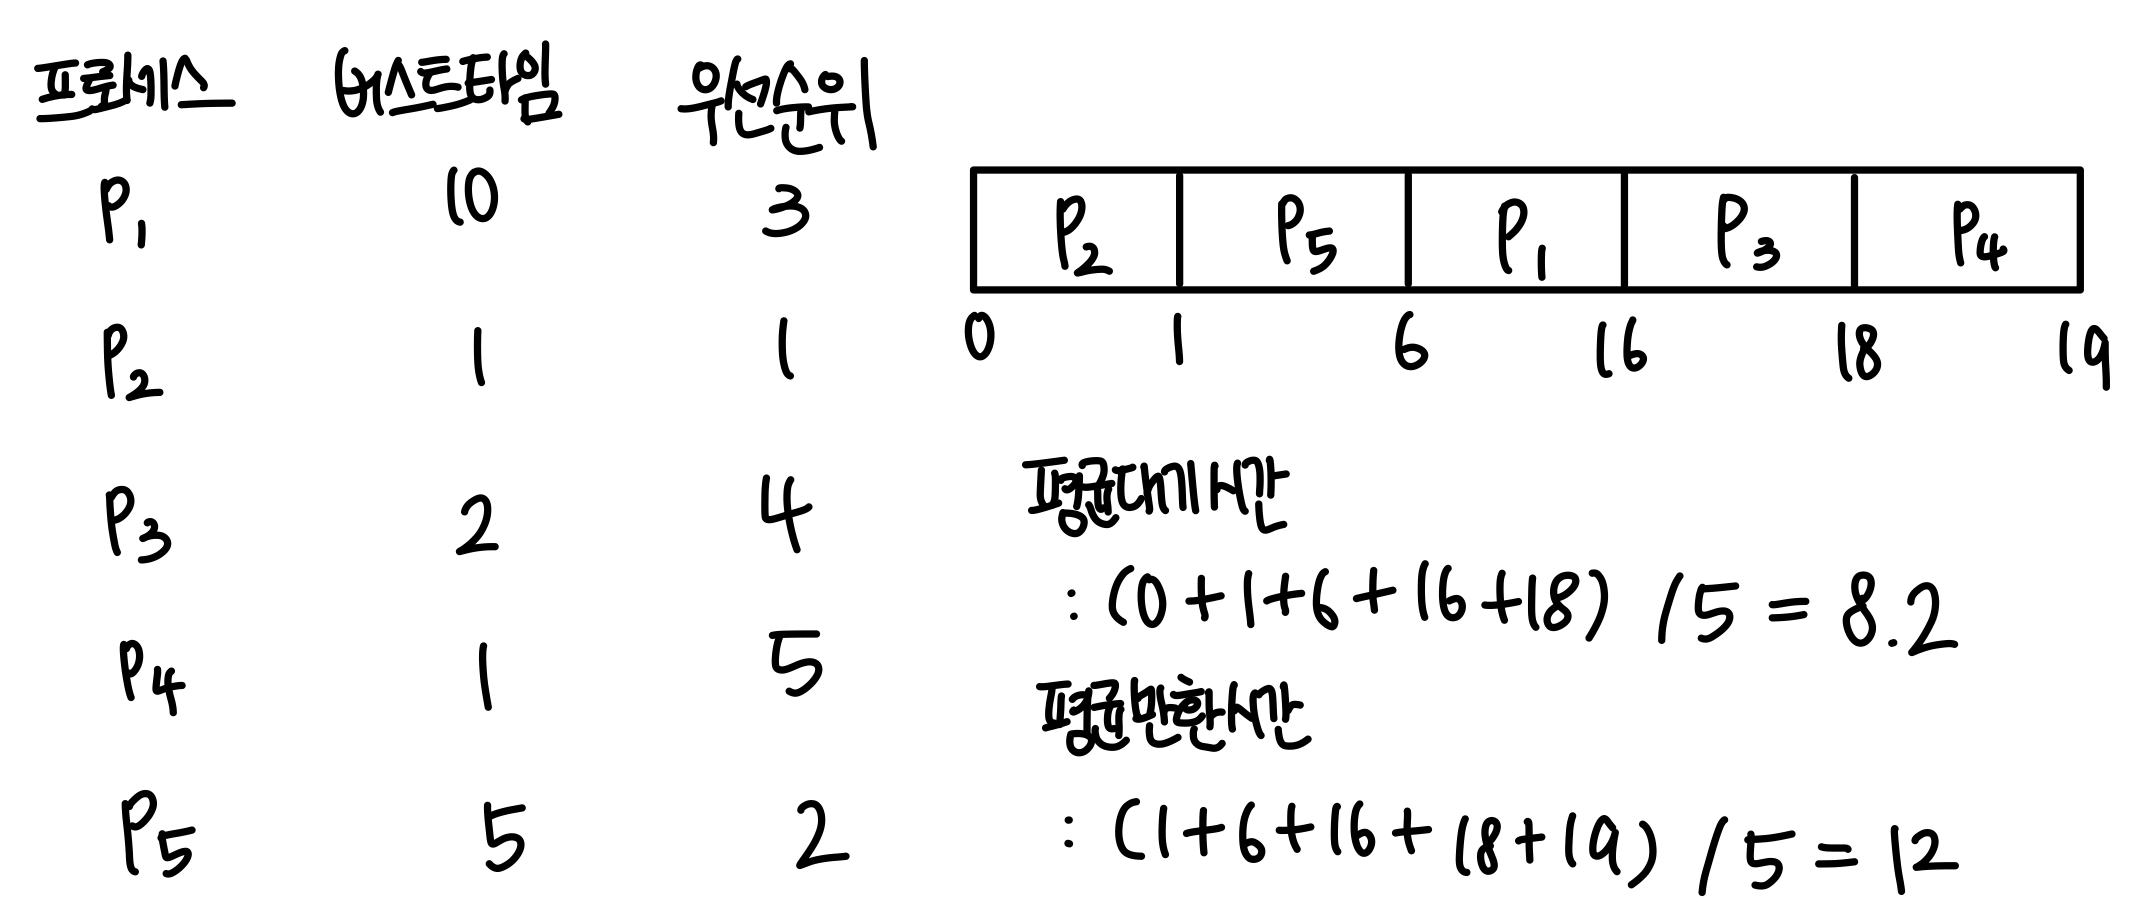 프로세스 버스트타임 우선순위
P1 10 3
P2 1 1
P3 2 4
P4 1 5
P5 5 2
P2 P5 P1 P3 P4
0 1 6 16 18 19
평균대기시간
: (0+1+6+16+18) /5 = 8.2
평균반환시간
: (1+6+16+18+19) /5 = 12